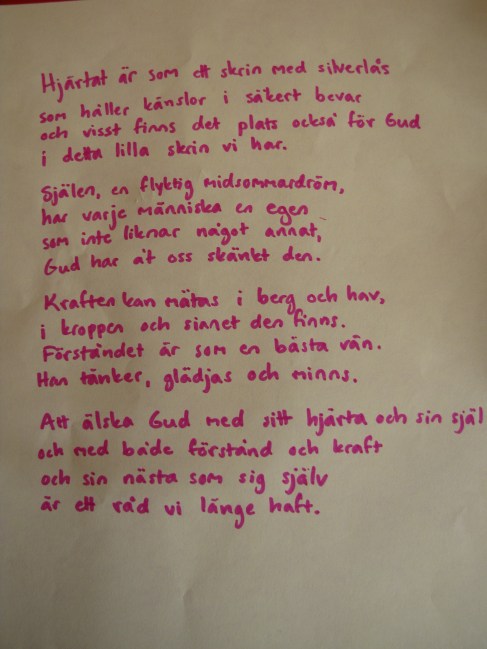 Hjärtat är som ett skrin med silverlås
som håller känslor i säkert bevar
och visst finns det plats också för Gud
i detta lilla skrin vi har.
Själen, en flyktig midsommardröm,
har varje människa en egen
som inte liknar något annat,
Gud har åt oss skänkt den.
Kraften kan mätas i berg och hav,
i kroppen och sinnet den finns.
Förståndet är som en bästa vän.
Han tänker, glädjas och minns.
Att älska Gud med sitt hjärta och sin själ
och med både förstånd och kraft
och sin nästa som sig själv
är ett råd vi länge haft.